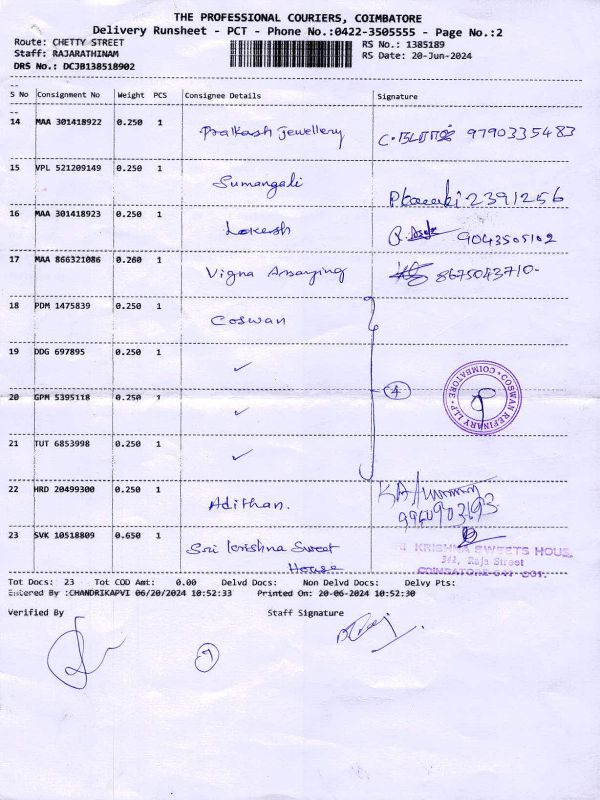 THE PROFESSIONAL COURIERS, COIMBATORE
Delivery Runsheet - PCT - Phone No.:0422-3505555 - Page No.:2
Route: CHETTY STREET RS No.: 1385189
Staff: RAJARATHINAM RS Date: 20-Jun-2024
DRS No.: DCJB138518902
S No Consignment No Weight PCS Consignee Details Signature
14 MAA 301418922 0.250 1 Pralkash Jewellery 9790335483
15 VPL 521209149 0.250 1 Sumangali 2391256
16 MAA 301418923 0.250 1 Lokersh 9043505102
17 MAA 866321086 0.260 1 Vigna 8675043710-
18 PDM 1475839 0.250 1 Coswan
19 DDG 697895 0.250 1 ✓
20 GPM 5395118 0.250 1 ✓
4
COSWAN REFINARY LLP COIMBATORE
21 TUT 6853998 0.250 1 ✓
22 HRD 20499300 0.250 1 Adithan.
23 SVK 10518809 0.650 1 Sri krishna Sweet
House
KRISHNA SWEETS HOUS
Raja Street
COIMBATORE-641 001.
Tot Docs: 23 Tot COD Amt: 0.00 Delvd Docs: Non Delvd Docs: Delvy Pts:
Entered By :CHANDRIKAPVI 06/20/2024 10:52:33 Printed On: 20-06-2024 10:52:30
Verified By Staff Signature